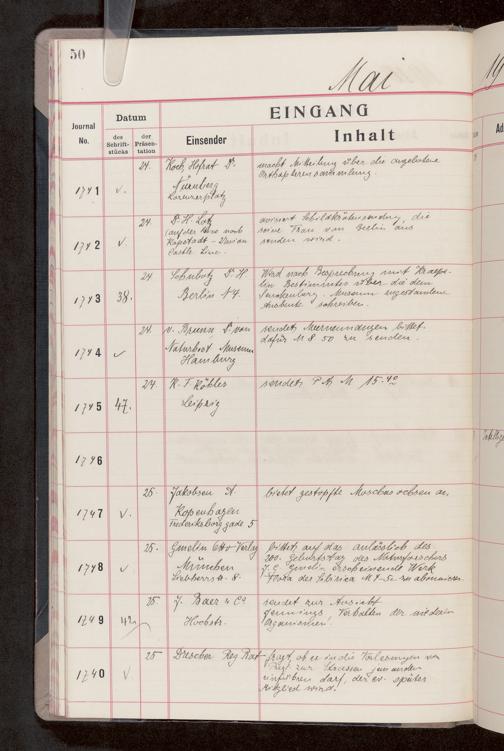 50
Mai
EINGANG
Journal No.
Datum
des Schrift- stücks
der Präsen- tation
Einsender
Inhalt
Ad
1741
24.
Koch Hofrat Dr.
Nürnberg
Lorenzerplatz
macht Mitteilung über die angebotene
Orthopterensammlung.
1742
24.
Dr. H. Lotz
(auf der Reise nach
Kapstadt - Union
Castle Line.
avisiert Schildkrötensendung, die
seine Frau von Berlin aus
senden wird.
1743
38.
24
Schubotz Dr. H.
Berlin N4.
Wird nach Besprechung mit
Bestimmtes über die dem
Museum zugestandene
Ausbeute schreiben.
1744
24.
v. Brunn Dr. von
Naturhist Museum
Hamburg
sendet bittet
dafür M 8 50 zu senden.
1745
47.
24.
K. F. Köhler
Leipzig
sendet P. A. M 15.40
1746
1747
25.
Jakobsen A.
Kopenhagen
Frederiksborggade 5
bietet gestopfte Moschusochsen an.
1748
25.
Gmelin Otto Verlag
München
bittet auf das anlässlich des
200. Geburtstag des Naturforschers
J. G. Gmelin erscheinende Werk
Flora des Sibirica M 1.50 zu abonnieren
1749
25
J. Baer & Co
Hochstr.
sendet zur Ansicht
Jennings Verhalten der niederen
Organismen.
1740
25
Drescher Reg Rat
fragt, ob er in die Vorlesungen von
zur jemanden
einführen darf, der ev. später
Mitglied wird.